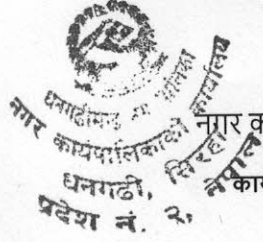 धनगढीमाई नगरपालिका
नगर कार्यपालिकाको कार्यालय
धनगढी, सिरहा
प्रदेश नं. २, नेपाल
नगर क
का